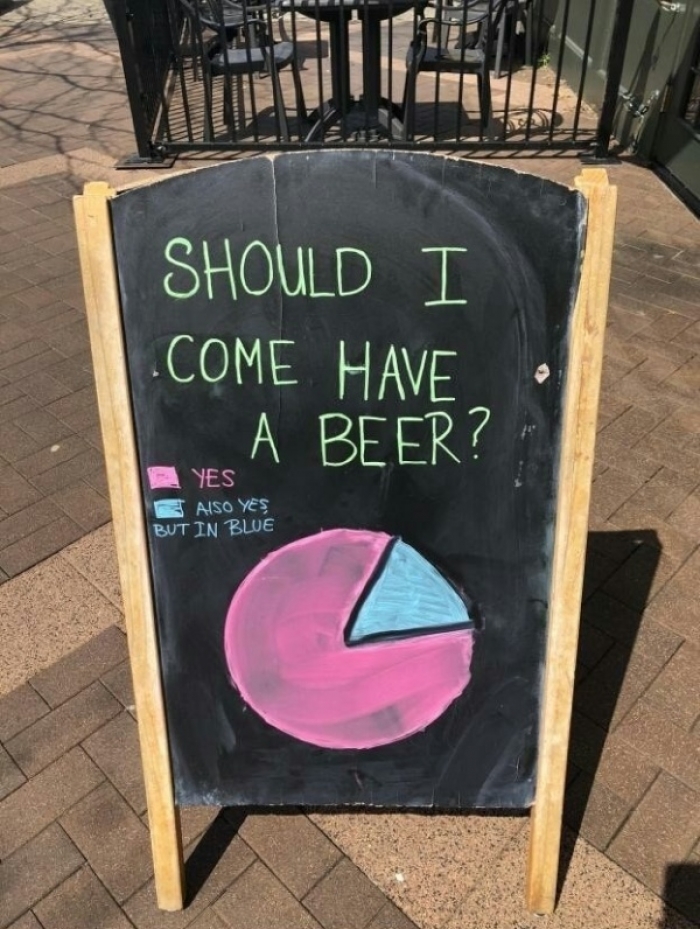 SHOULD I
COME HAVE
A BEER?
YES
AlSO YES
BUT IN BLUE